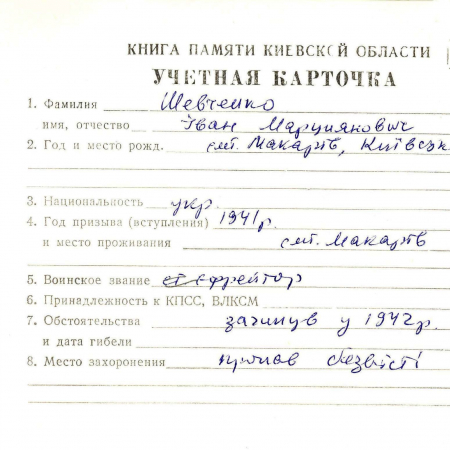 КНИГА ПАМЯТИ КИЕВСКОЙ ОБЛАСТИ
УЧЕТНАЯ КАРТОЧКА
1. Фамилия Шевченко
имя, отчество Іван Марциянович
2. Год и место рожд. смт. Макарів, Київськ
3. Национальность укр.
4. Год призыва (вступления) 1941р.
и место проживания смт. Макарів
5. Воинское звание ефрейтор
6. Принадлежность к КПСС, ВЛКСМ
7. Обстоятельства загинув у 1942р.
и дата гибели
8. Место захоронения пропав безвісті